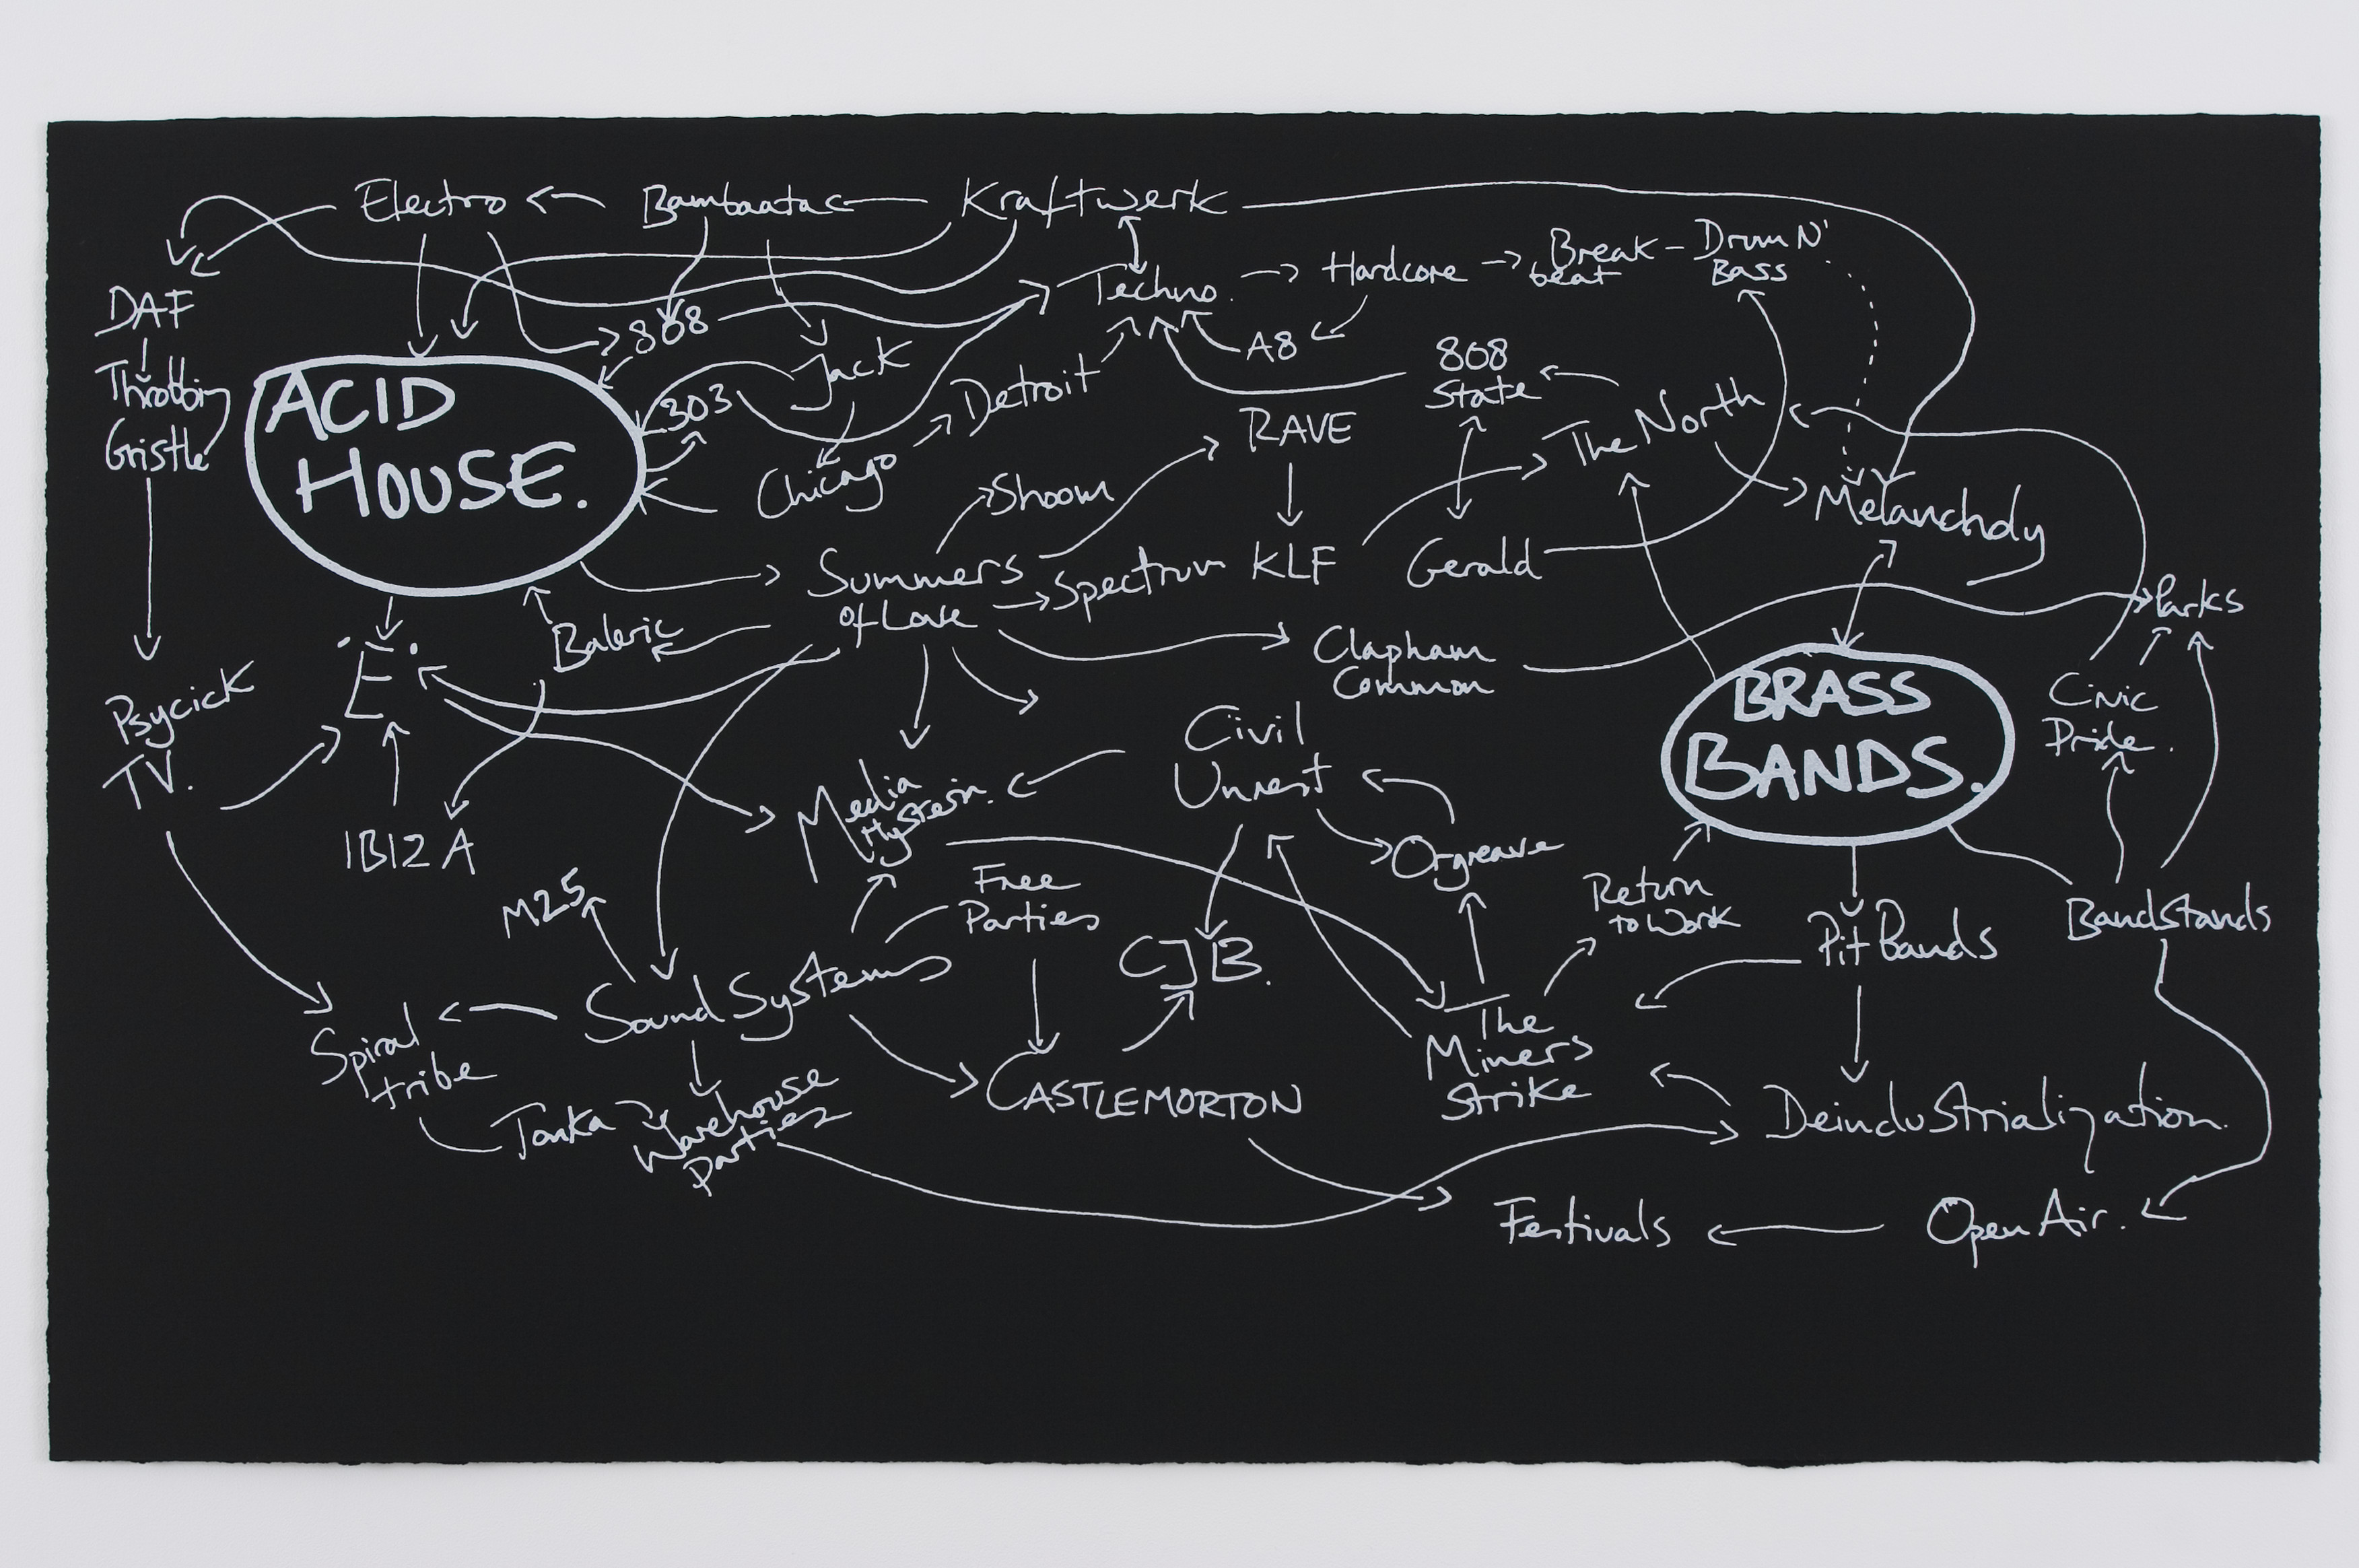 Electro
Bambaataa
Kraftwerk
DAF
Throbbing
Gristle
808
Jack
303
Techno.
Hardcore
Break
beat
Drum N'
Bass
A8
Detroit
808
State
RAVE
The North
ACID
HOUSE.
Chicago
Shoom
Melancholy
Summers
of Love
Spectrum
KLF
Gerald
Parks
Baleric
'E'
Clapham
Common
Psycick
TV.
BRASS
BANDS.
Civic
Pride.
Civil
Unrest
Media
Hysteria.
IBIZA
Orgreave
M25
Free
Parties
CJB.
Return
to Work
Pit Bands
Bandstands
Sound Systems
Spiral
tribe
The
Miners
Strike
Tonka
Warehouse
Parties
CASTLEMORTON
Deindustrialization.
Festivals
Open Air.